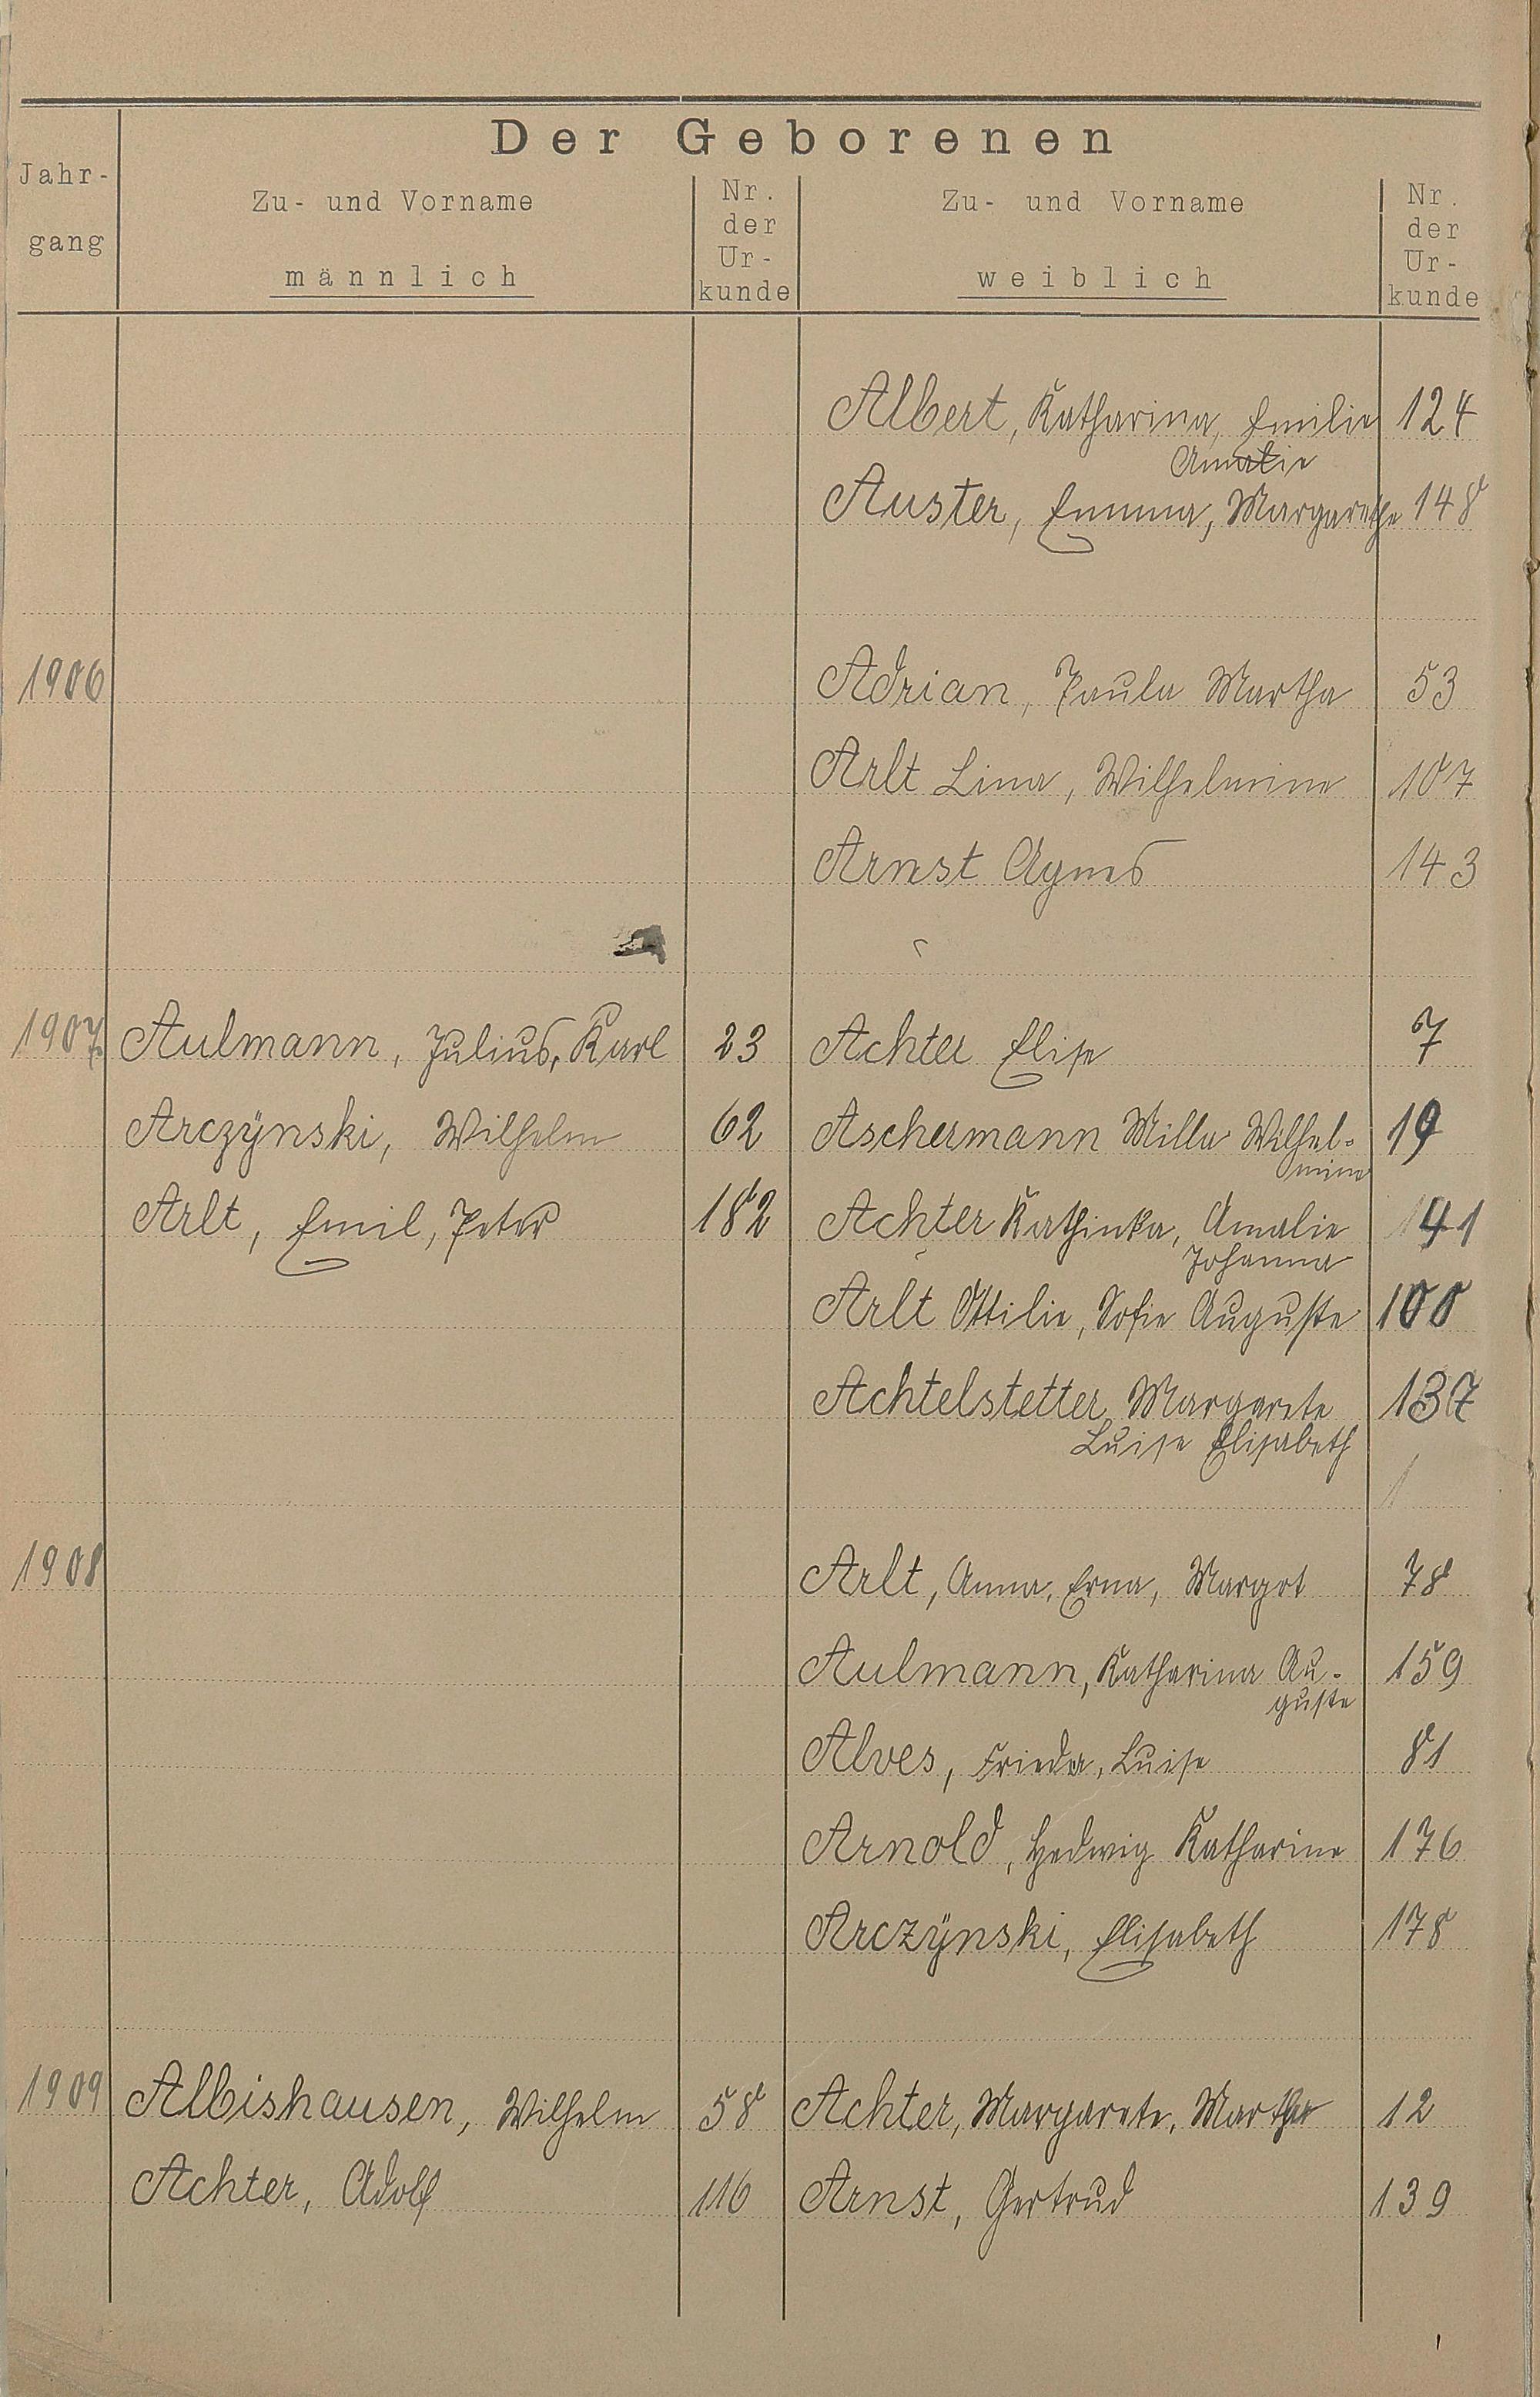 Der Geborenen
Jahr-
gang
Zu- und Vorname
männlich
Nr.
der
Ur-
kunde
Zu- und Vorname
weiblich
Nr.
der
Ur-
kunde
Albert, Katharina, Emilie 124
Amalie
Auster, Emma, Margarethe 148
1906 Adrian, Paula Martha 53
Arlt Lina, Wilhelmine 107
Arnst Agnes 143
1907 Aulmann, Julius, Karl 23 Achter Elise 7
Arczÿnski, Wilhelm 62 Aschermann Milla Wilhel- 19
mine
Arlt, Emil, Peter 182 Achter Kathinka, Amalie 141
Johanna
Arlt Ottilie, Sofie Auguste 100
Achtelstetter Margarete 137
Luise Elisabeth
1908 Arlt, Anna, Erna, Margot 78
Aulmann, Katharina Au- 159
guste
Alves, Frieda, Luise 81
Arnold, Hedwig Katharine 176
Arczÿnski, Elisabeth 178
1909 Albishausen, Wilhelm 58 Achter, Margarete, Martha 12
Achter, Adolf 116 Arnst, Gertrud 139